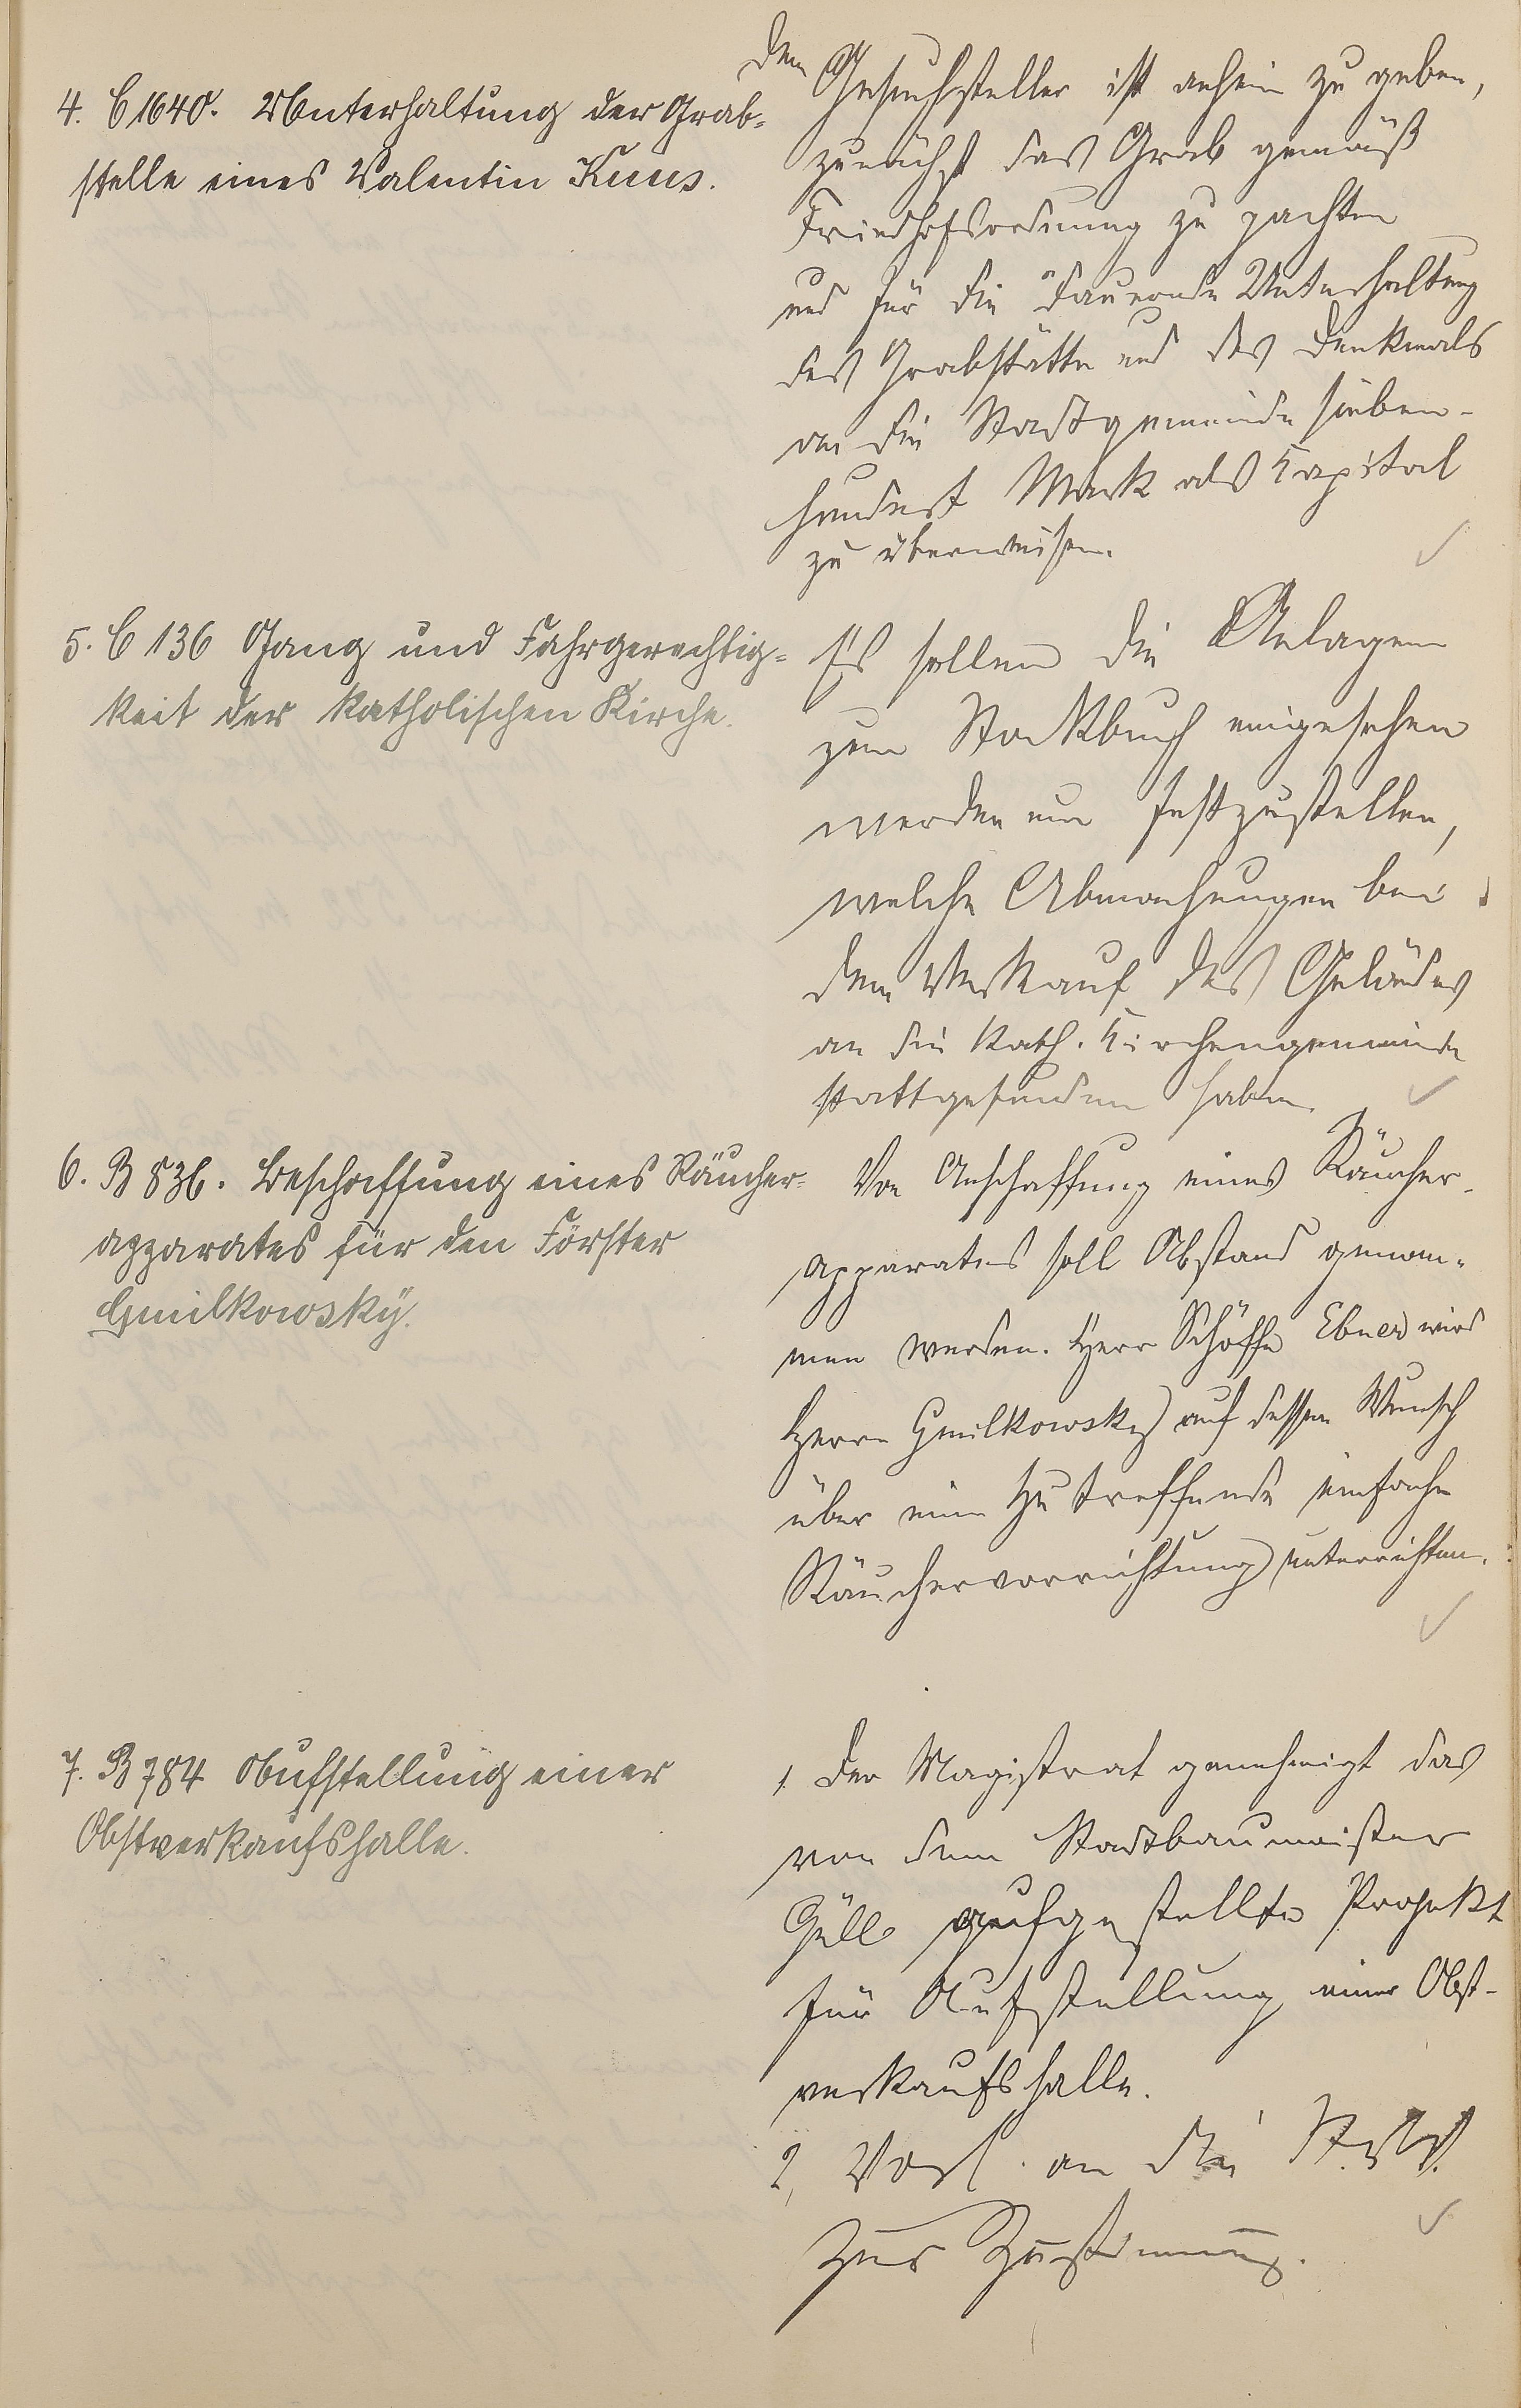 4. C 1640. Unterhaltung der Grab-
stelle eines Valentin Kuus.
Dem Gesuchsteller ist anheim zu geben,
zunächst das Grab gemäß
Friedhofsordnung zu pachten
und für die dauernde Unterhaltung
des Grabstätte und des Denkmals
an die Stadtgemeinde sieben-
hundert Mark als Kapital
zu überweisen.
5. C 136 Gang und Fahrgerechtig-
keit der katholischen Kirche.
Es sollen die Anlagen
zum Stockbuch eingesehen
werden um festzustellen,
welche Abmachungen bei
dem Verkauf des Geländes
an die Kath. Kirchengemeinde
stattgefunden haben.
6. B 836. Beschaffung eines Räucher-
apparates für den Förster
Gmilkowsky.
Von Anschaffung eines Räucher-
apparates soll Abstand genom-
men werden. Herr Schöffe Ebner wird
Herrn Gmilkowsky auf dessen Wunsch
über eine zu treffende einfache
Räuchervorrichtung unterrichten.
7. B 784 Aufstellung einer
Obstverkaufshalle.
1. Der Magistrat genehmigt das
von dem Stadtbaumeister
Güll aufgestellte Projekt
für Aufstellung einer Obst-
verkaufshalle.
2, Vorl. an die St.V.V.
zur Zustimmung.